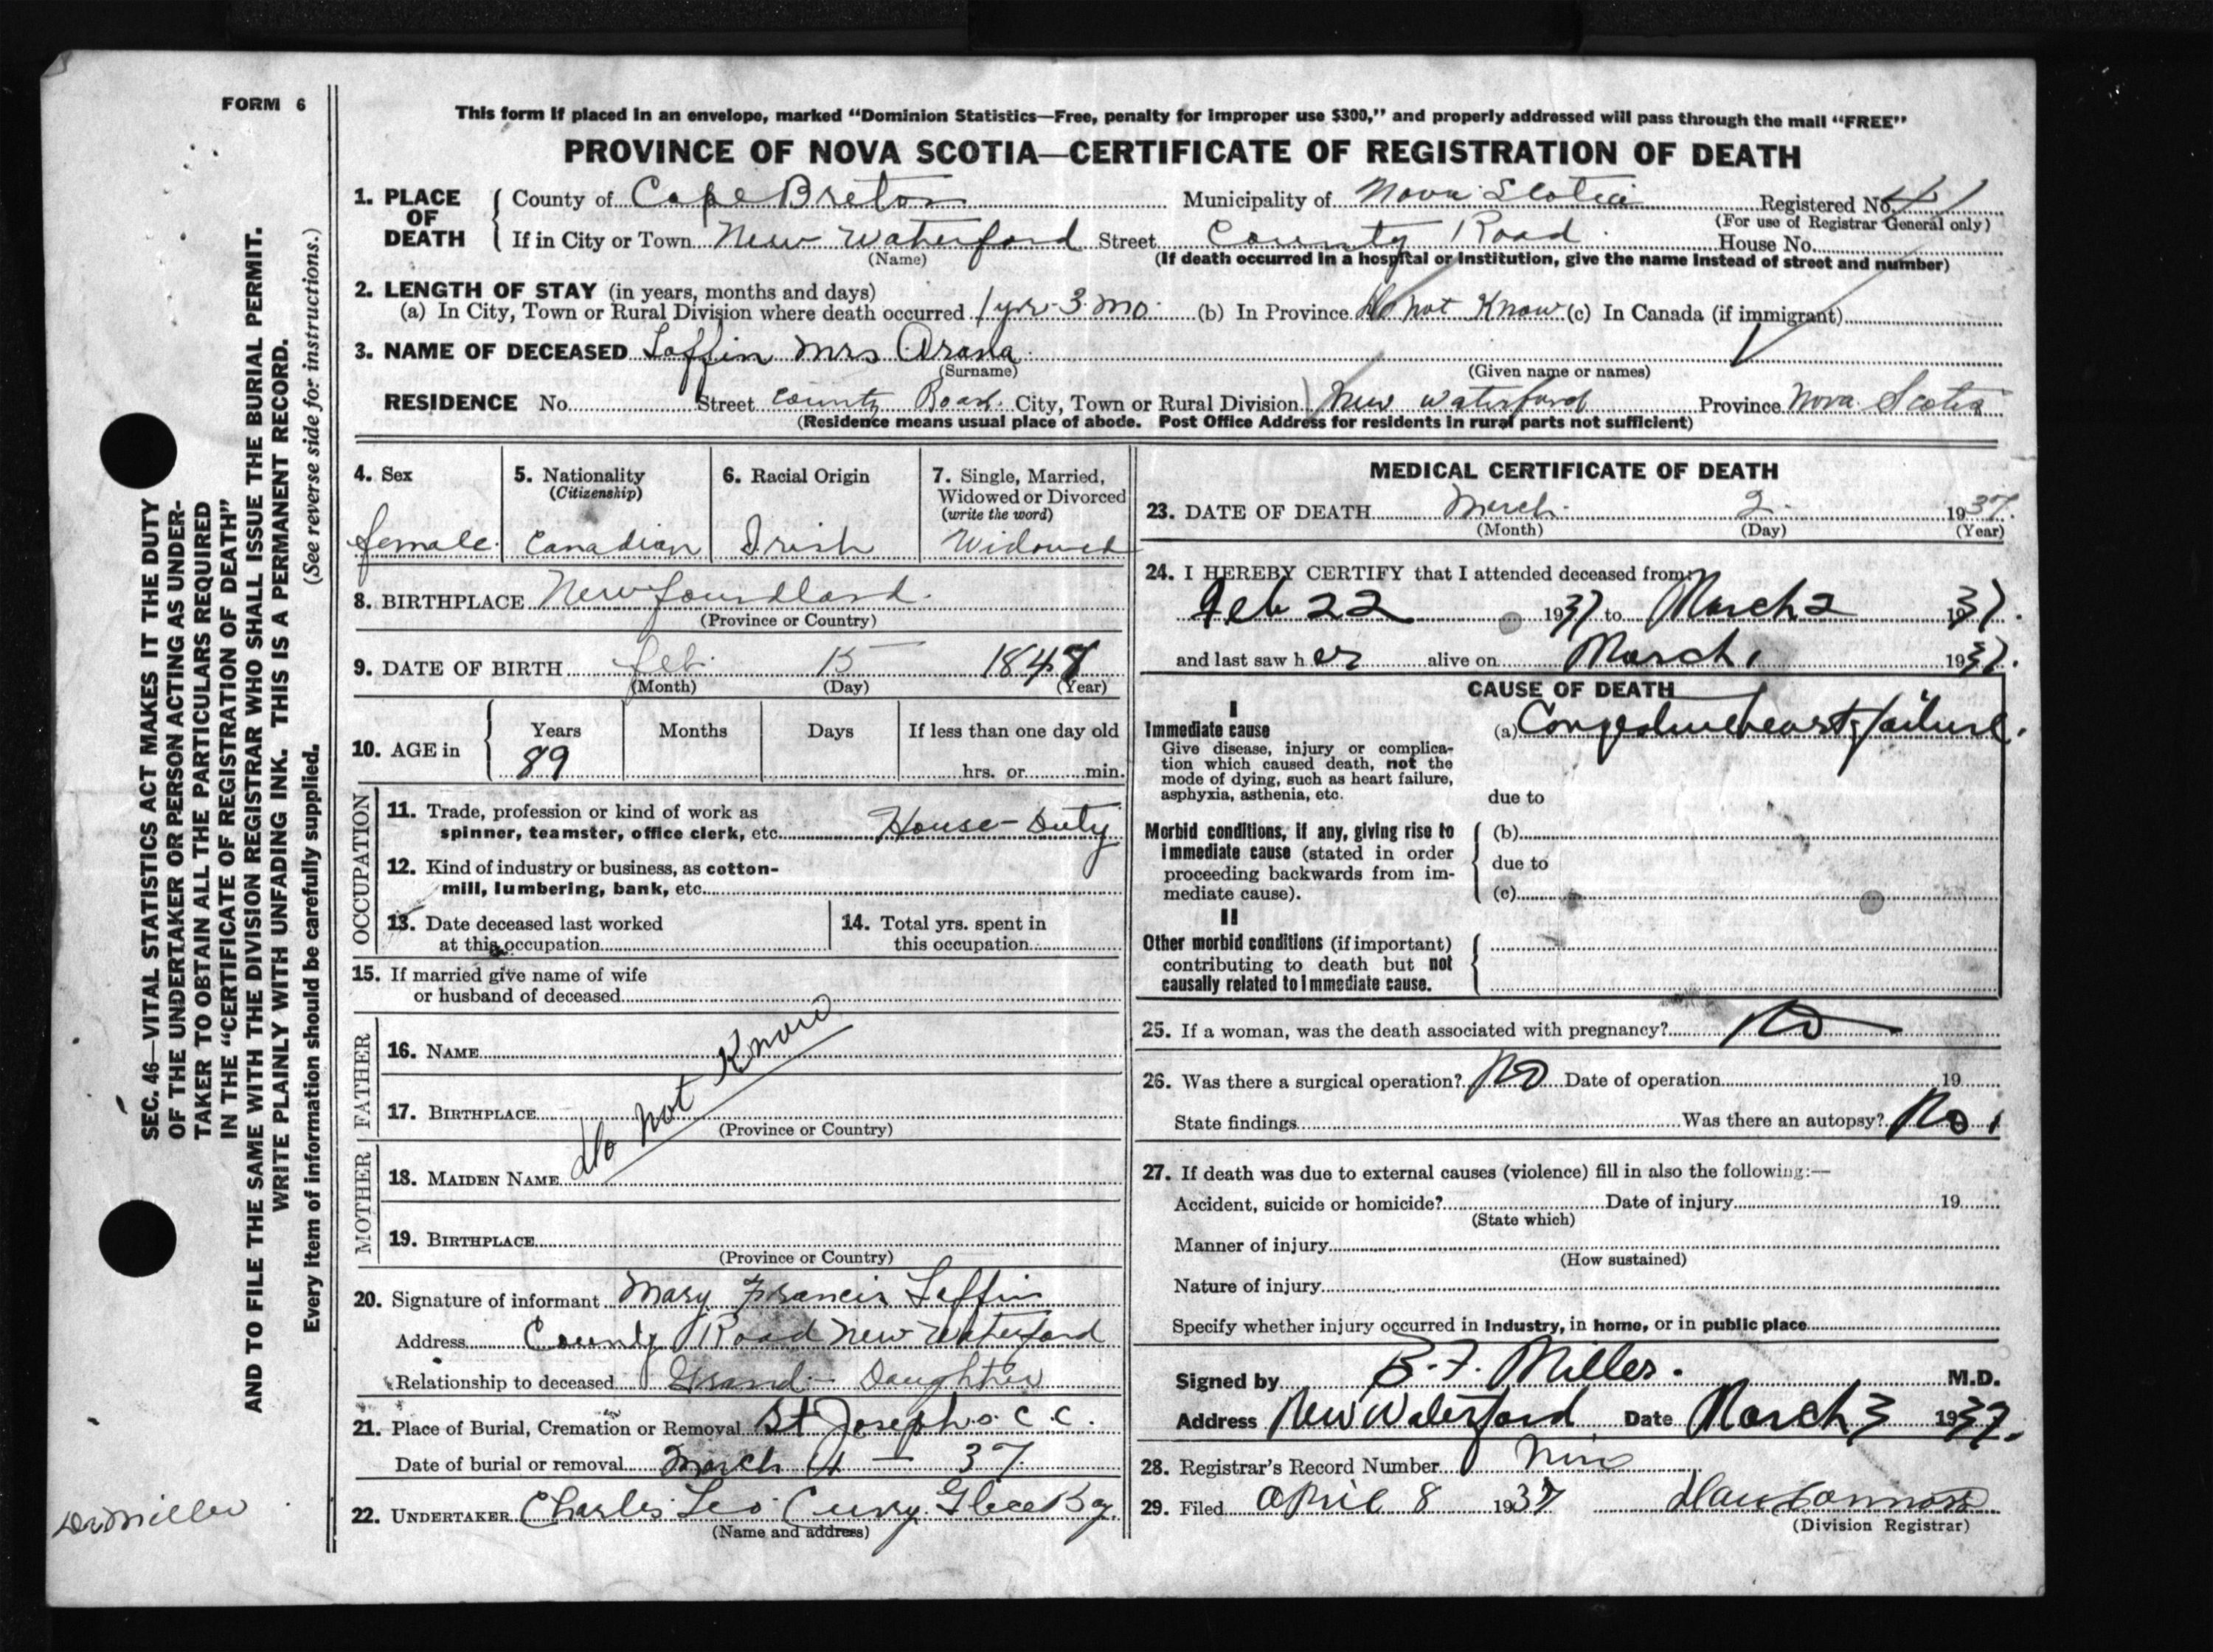 FORM 6
This form if placed in an envelope, marked “Dominion Statistics—Free, penalty for improper use $300,” and properly addressed will pass through the mail “FREE”
PROVINCE OF NOVA SCOTIA—CERTIFICATE OF REGISTRATION OF DEATH
1. PLACE OF DEATH County of Cape Breton Municipality of Nova Scotia Registered No. 41
(For use of Registrar General only)
If in City or Town New Waterford Street County Road House No.
(Name) (If death occurred in a hospital or institution, give the name instead of street and number)
2. LENGTH OF STAY (in years, months and days)
(a) In City, Town or Rural Division where death occurred 1 yr 3 mo (b) In Province Do not Know (c) In Canada (if immigrant)
3. NAME OF DECEASED Laffin Mrs
(Surname) (Given name or names)
RESIDENCE No. Street County Road City, Town or Rural Division New Waterford Province Nova Scotia
(Residence means usual place of abode. Post Office Address for residents in rural parts not sufficient)
4. Sex female
5. Nationality
(Citizenship)
Canadian
6. Racial Origin
Irish
7. Single, Married,
Widowed or Divorced
(write the word)
Widowed
8. BIRTHPLACE Newfoundland
(Province or Country)
9. DATE OF BIRTH Feb 15 1848
(Month) (Day) (Year)
10. AGE in Years Months Days If less than one day old
89 hrs. or min.
OCCUPATION
11. Trade, profession or kind of work as
spinner, teamster, office clerk, etc. House-Duty
12. Kind of industry or business, as cotton-
mill, lumbering, bank, etc.
13. Date deceased last worked
at this occupation
14. Total yrs. spent in
this occupation
15. If married give name of wife
or husband of deceased
FATHER
16. NAME
17. BIRTHPLACE
(Province or Country)
Do not Know
MOTHER
18. MAIDEN NAME
19. BIRTHPLACE
(Province or Country)
20. Signature of informant Mary Francis Laffin
Address County Road New Waterford
Relationship to deceased Grand-Daughter
21. Place of Burial, Cremation or Removal St Josephs C.C.
Date of burial or removal March 4 — 37
22. UNDERTAKER Charles Leo Curry. Glace Bay.
(Name and address)
MEDICAL CERTIFICATE OF DEATH
23. DATE OF DEATH March 2 1937.
(Month) (Day) (Year)
24. I HEREBY CERTIFY that I attended deceased from:
Feb 22 1937 to March 2 1937.
and last saw her alive on March 1 1937.
CAUSE OF DEATH
I
Immediate cause
Give disease, injury or complica-
tion which caused death, not the
mode of dying, such as heart failure,
asphyxia, asthenia, etc.
(a) Congestive heart failure.
due to
Morbid conditions, if any, giving rise to
immediate cause (stated in order
proceeding backwards from im-
mediate cause).
(b)
due to
(c)
II
Other morbid conditions (if important)
contributing to death but not
causally related to immediate cause.
25. If a woman, was the death associated with pregnancy? No
26. Was there a surgical operation? No Date of operation 19
State findings Was there an autopsy? No.
27. If death was due to external causes (violence) fill in also the following:—
Accident, suicide or homicide? Date of injury 19
(State which)
Manner of injury
(How sustained)
Nature of injury
Specify whether injury occurred in Industry, in home, or in public place
Signed by B. F. Miller. M.D.
Address New Waterford Date March 3 1937.
28. Registrar's Record Number
29. Filed April 8 1937
(Division Registrar)
SEC. 46—VITAL STATISTICS ACT MAKES IT THE DUTY
OF THE UNDERTAKER OR PERSON ACTING AS UNDER-
TAKER TO OBTAIN ALL THE PARTICULARS REQUIRED
IN THE “CERTIFICATE OF REGISTRATION OF DEATH”
AND TO FILE THE SAME WITH THE DIVISION REGISTRAR WHO SHALL ISSUE THE BURIAL PERMIT.
WRITE PLAINLY WITH UNFADING INK. THIS IS A PERMANENT RECORD.
Every item of information should be carefully supplied. (See reverse side for instructions.)
Dr Miller